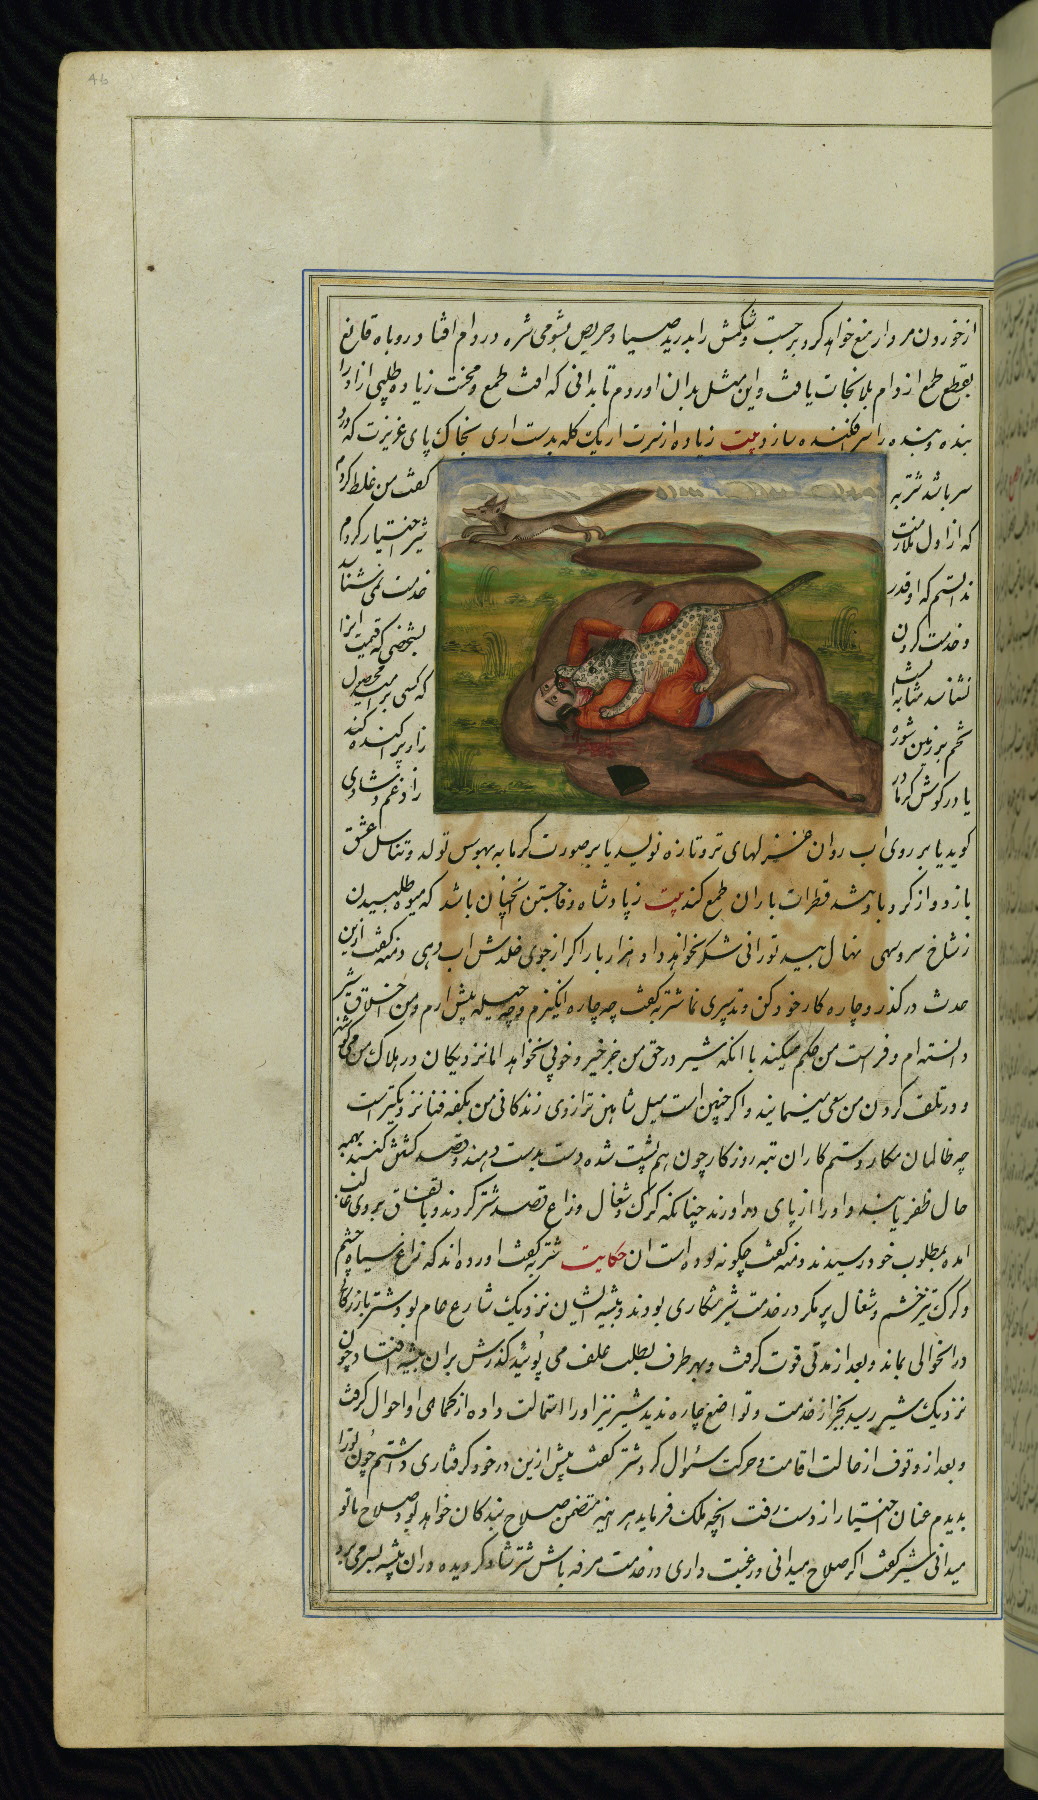 از خوردن مردار منع خواهد کرد برجست و شکمش را بدرید صیاد حریص بشومی شره در دام افتاد و روباه قانع
بقطع طمع از دام بلا نجات یافت و این مثل بدان اوردم تا بدانی که افت طمع و محنت زیاده طلبی ازاد را
بنده و بنده را سرافکنده سازد بیت زیاده از سرت ار یک کله بدست اری بخاک پای عزیزت که درد
سر باشد شتربه گفت من غلط کردم
که از اول ملازمت شیر اختیار کردم
ندانستم که او قدر خدمت نمی‌شناسد
و خدمت کردن بشخصی که قیمت انرا
نشناسد بمثابه انست که کسی بر امید محصول
تخم بر زمین شوره زار پراکنده کند
یا در گوش کر مادر زاد غم و شادی
گوید یا بر روی اب روان غزلهای تر و تازه نویسد یا بر صورت گرمابه بهوس تولد و تناسل عشق
بازد و از گردباد شدید قطرات باران طمع کند بیت ز پادشاه وفا جستن انچنان باشد که میوه طلبیدن
ز شاخ سرو سهی نهال بید تو رانی شکر نخواهد داد هزار بار اگر از جوی خلدش اب دهی دمنه گفت ازین
حدیث درگذر و چاره کار خود کن و تدبیری نما شتربه گفت چه چاره انگیزم و چه حیله پیش ارم و من اخلاق شیر
دانسته‌ام و فراست من حکم میکند با انکه شیر در حق من جز خیر و خوبی نخواهد اما نزدیکان در هلاک من می‌کوشند
و در تلف کردن من سعی مینمایند و اگر چنین است میل شاهین ترازوی زندگانی من بکفه فنا نزدیکتر است
چه ظالمان مکار و ستمکاران تبه روزگار چون هم پشت شده دست بدست دهند و قصد کسی کنند بهمه
حال ظفر یابند و او را از پای در اورند چنانکه گرگ و شغال و زاغ قصد شتر کردند و باتفاق بر وی غالب
امده بمطلوب خود رسیدند دمنه گفت چگونه بوده است ان حکایت شتربه گفت اورده‌اند که زاغ سیاه چشم
و گرگ تیز خشم و شغال پر مکر در خدمت شیر شکاری بودند و بیشه ایشان نزدیک شارع عام بود شتر بازرگانی
در انحوالی بماند و بعد از مدتی قوت گرفت و بهر طرف بطلب علف می پوئید گذرش بران بیشه افتاد چون
نزدیک شیر رسید بجز از خدمت و تواضع چاره ندید شیر نیز او را استمالت داده از کماهی احوال گرفت
و بعد از وقوف از حالت اقامت و حرکت سئوال کرد شتر گفت پیش ازین در خود گرفتاری داشتم چون ترا
بدیدم عنان اختیار از دست رفت انچه ملک فرماید هر اینه متضمن صلاح بندگان خواهد بود صلاح ما تو
میدانی شیر گفت اگر صلاح میدانی و رغبت داری در خدمت مرفه باش شتر شاد گردیده دران بیشه بسر می برد